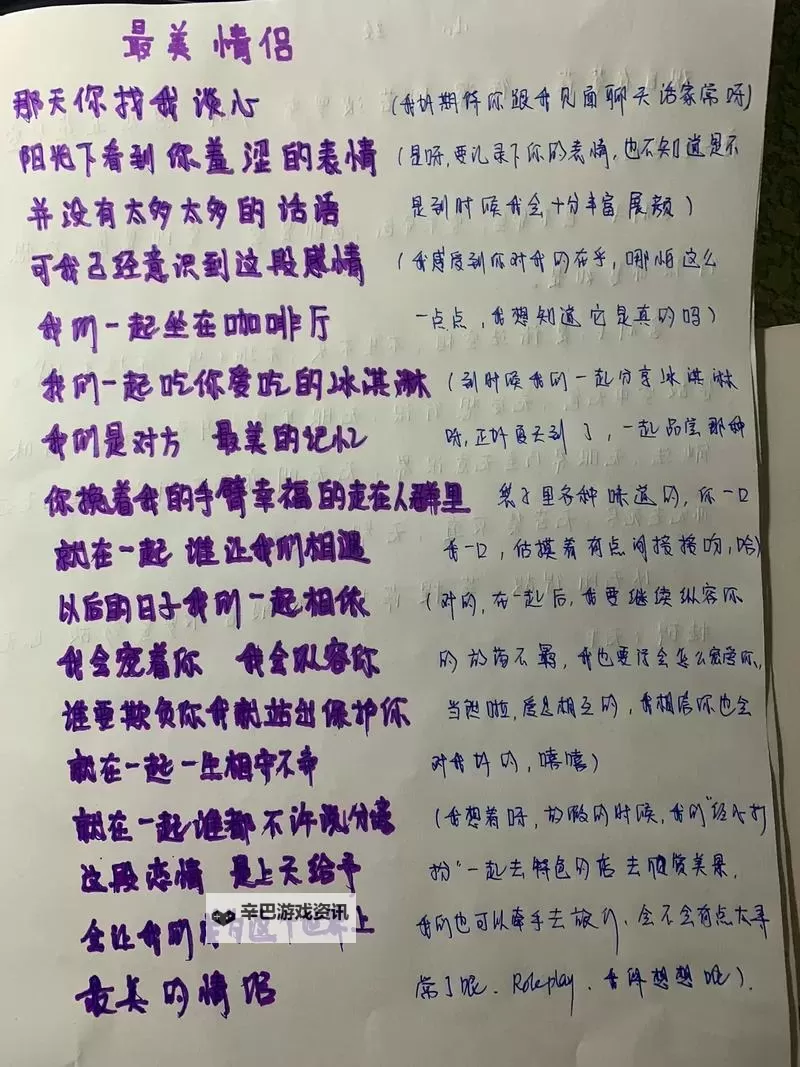 最美情侣
那天你找我谈心
(我好期待你跟我见面聊天话家常呀)
阳光下看到你羞涩的表情
(是呀,要记录下你的表情,也不知道是不
并没有太多太多的话语
是到时候我会十分丰富展颜)
可我已经意识到这段感情
(我感受到你对我的在乎,哪怕这么
我们一起坐在咖啡厅
一点点,我想知道它是真的吗)
我们一起吃你爱吃的冰淇淋
(到时候我们一起分享冰淇淋
我们是对方 最美的记忆
呀,正好夏天到了,一起品尝那种
你挽着我的手臂幸福的走在人群里
袋子里各种味道的,你一口
就在一起 谁让我们相遇
我一口,估摸着有点间接接吻,哈)
以后的日子我们一起相依
(对的,在一起后,我要继续纵容你
我会宠着你 我会纵容你
的 我也要 会怎么宠爱你,
谁要欺负你我就站出保护你
当然啦,爱是相互的,我相信你也会
就在一起一生相守不弃
对我好的,嘻嘻)
就在一起谁都不许说分离
(我想着呀,放假的时候,我们"经心打
这段恋情 是上天给予
扮"一起去特色的店去 美景,
会让我们 上
辛巴游戏资讯
我们也可以牵手去旅行,会不会有点太寻
最美的情侣
常了呢、Roleplay、我 想想呢).